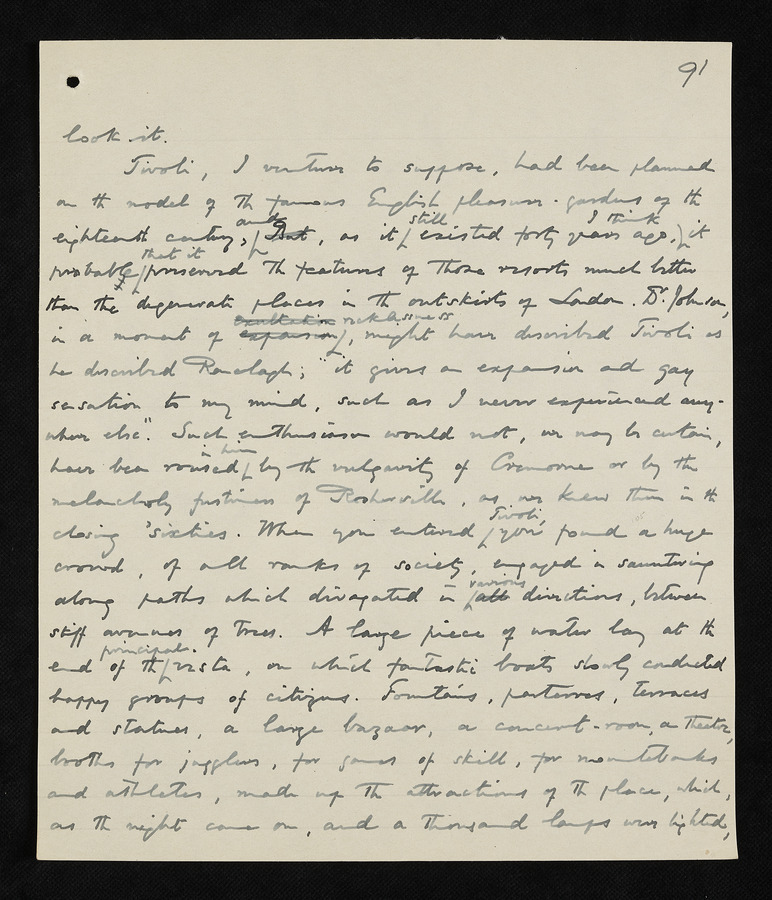 91
look it.
Tivoli, I venture to suppose, had been planned
on th model of th famous English pleasure-gardens of th
eighteenth century, and But, as it still existed forty years ago, I think it
probable that it preserved th features of those resorts much better
than the degenerate places in th outskirts of London. Dr. Johnson,
in a moment of expansion exultation recklessness, might have described Tivoli as
he described Ranelagh; "it gives an expansion and gay
sensation to my mind, such as I never experienced any-
where else". Such enthusiasm would not, we may be certain,
have been roused in him by th vulgarity of Cremorne or by the
melancholy fustiness of Rosherville, as we knew them in th
closing 'sixties. When you entered Tivoli, you found a huge
crowd, of all ranks of society, engaged in sauntering
along paths which divagated in all various directions, between
stiff avenues of trees. A large piece of water lay at th
end of th principal vista, on which fantastic boats slowly conducted
happy groups of citizens. Fountains, parterres, terraces
and statues, a large bazaar, a concert-room, a theatre,
booths for jugglers, for games of skill, for mountebanks
and athletes, made up th attractions of th place, which,
as th night came on, and a thousand lamps were lighted,